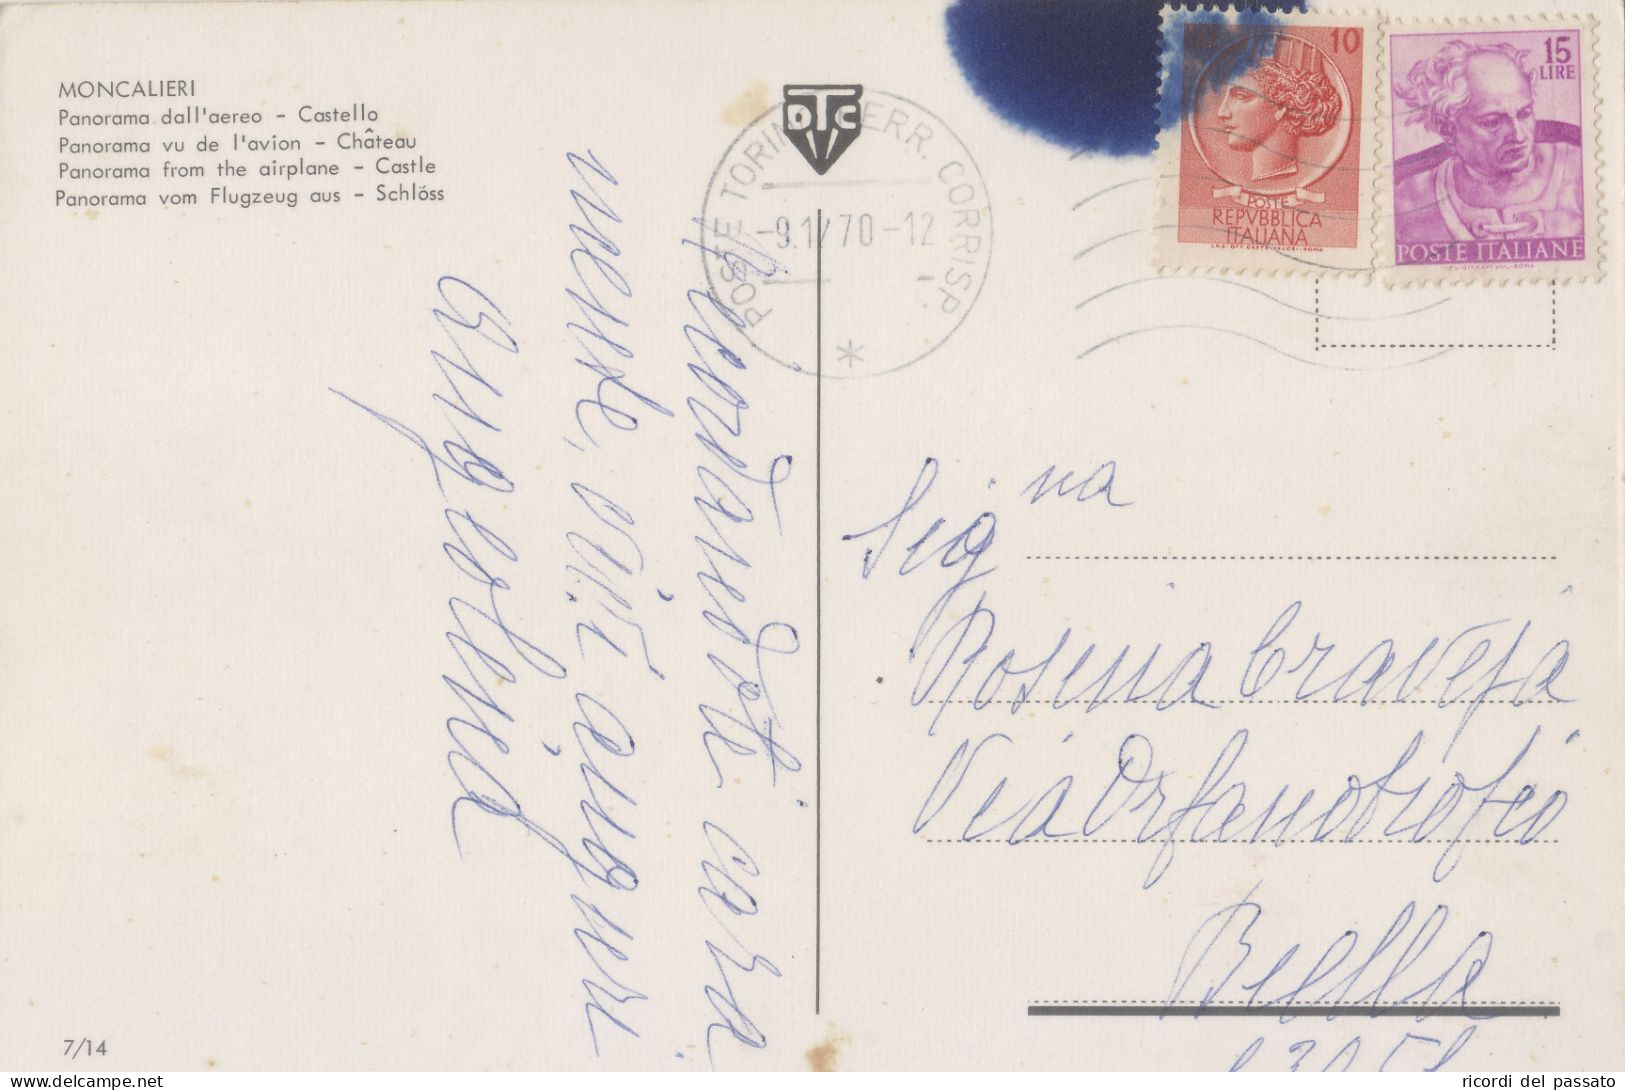 MONCALIERI
Panorama dall'aereo - Castello
Panorama vu de l'avion - Château
Panorama from the airplane - Castle
Panorama vom Flugzeug aus - Schlöss
DTC
POSTE TORINO FERR. CORRISP.
-9.12 70-12
10
POSTE
REPVBBLICA
ITALIANA
15
LIRE
POSTE ITALIANE
cara
auguri
Sig na
Rosina Craveja
Via Orfanotrofio
Biella
13051
7/14
ricordi del passato